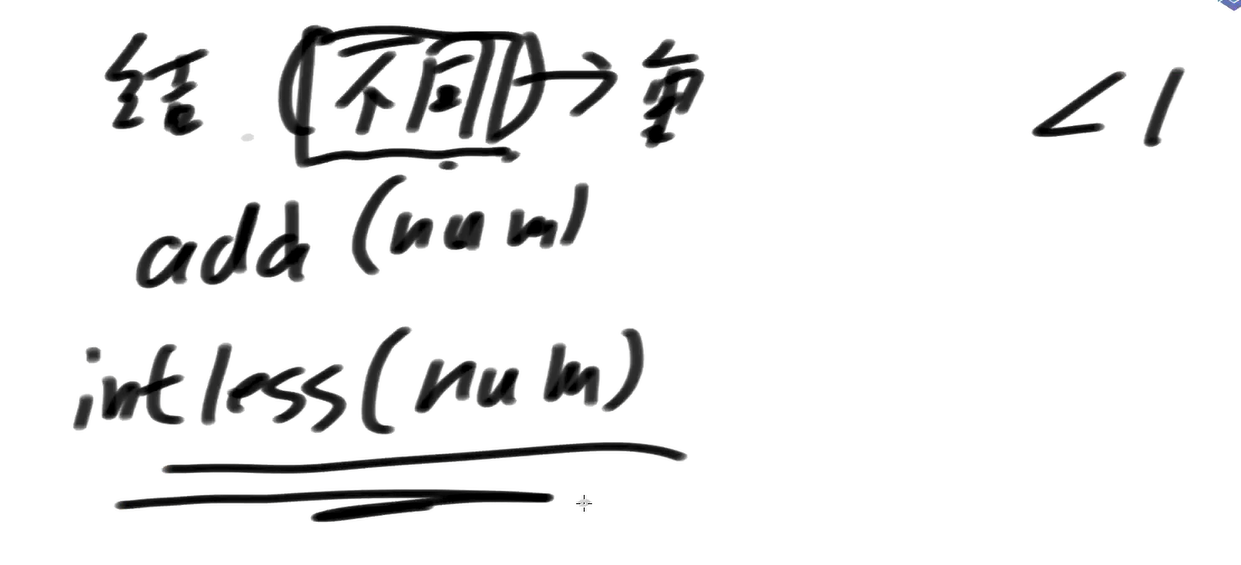 结 (不同) → 重 <1
add (num)
int less(num)